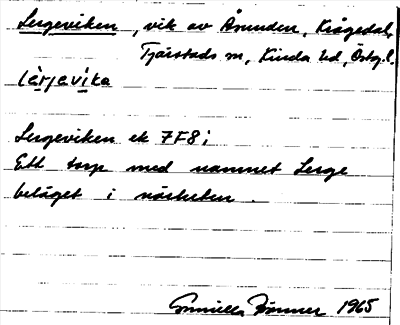 Lergeviken, vik av Åsunden, Krågedal,
Tjärstads sn, Kinda hd, Östg.l.
lèrjevika
Lergeviken ek 7F8;
Ett torp med namnet Lerge
beläget i närheten.
Gunilla 1965